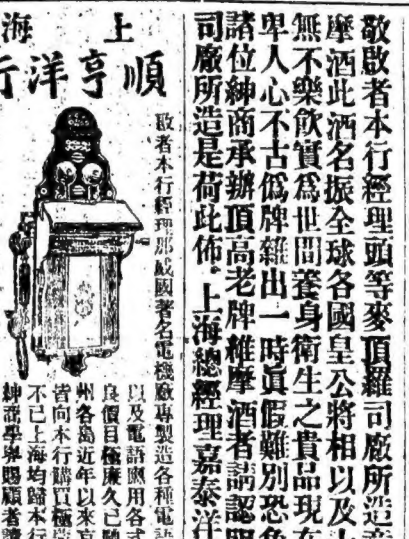 敬啟者本行經理頭等麥頂羅司廠所造
摩酒此酒名振全球各國皇公將相以及
無不樂飲實爲世間養身衛生之貴品現在
卑人心不古僞牌雜出一時眞假難別恐
諸位紳商承辦頂高老牌維摩酒者請認
司廠所造是荷此佈。上海總經理嘉泰洋
上海
順亨洋行
啟者本行經理那威國著名電機廠專製造各種電話
以及電話應用各式
良價目極廉久已馳
州各島近年以來
皆向本行購買極
不已上海均歸本行
紳商學界賜顧者